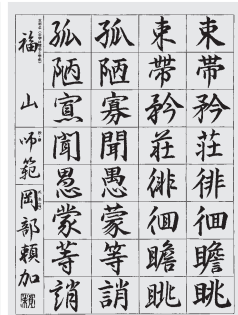 束帶矜莊徘徊瞻眺
束帶矜莊徘徊瞻眺
孤陋寡聞愚蒙等誚
孤陋寡聞愚蒙等誚
福山師範 岡部頼加